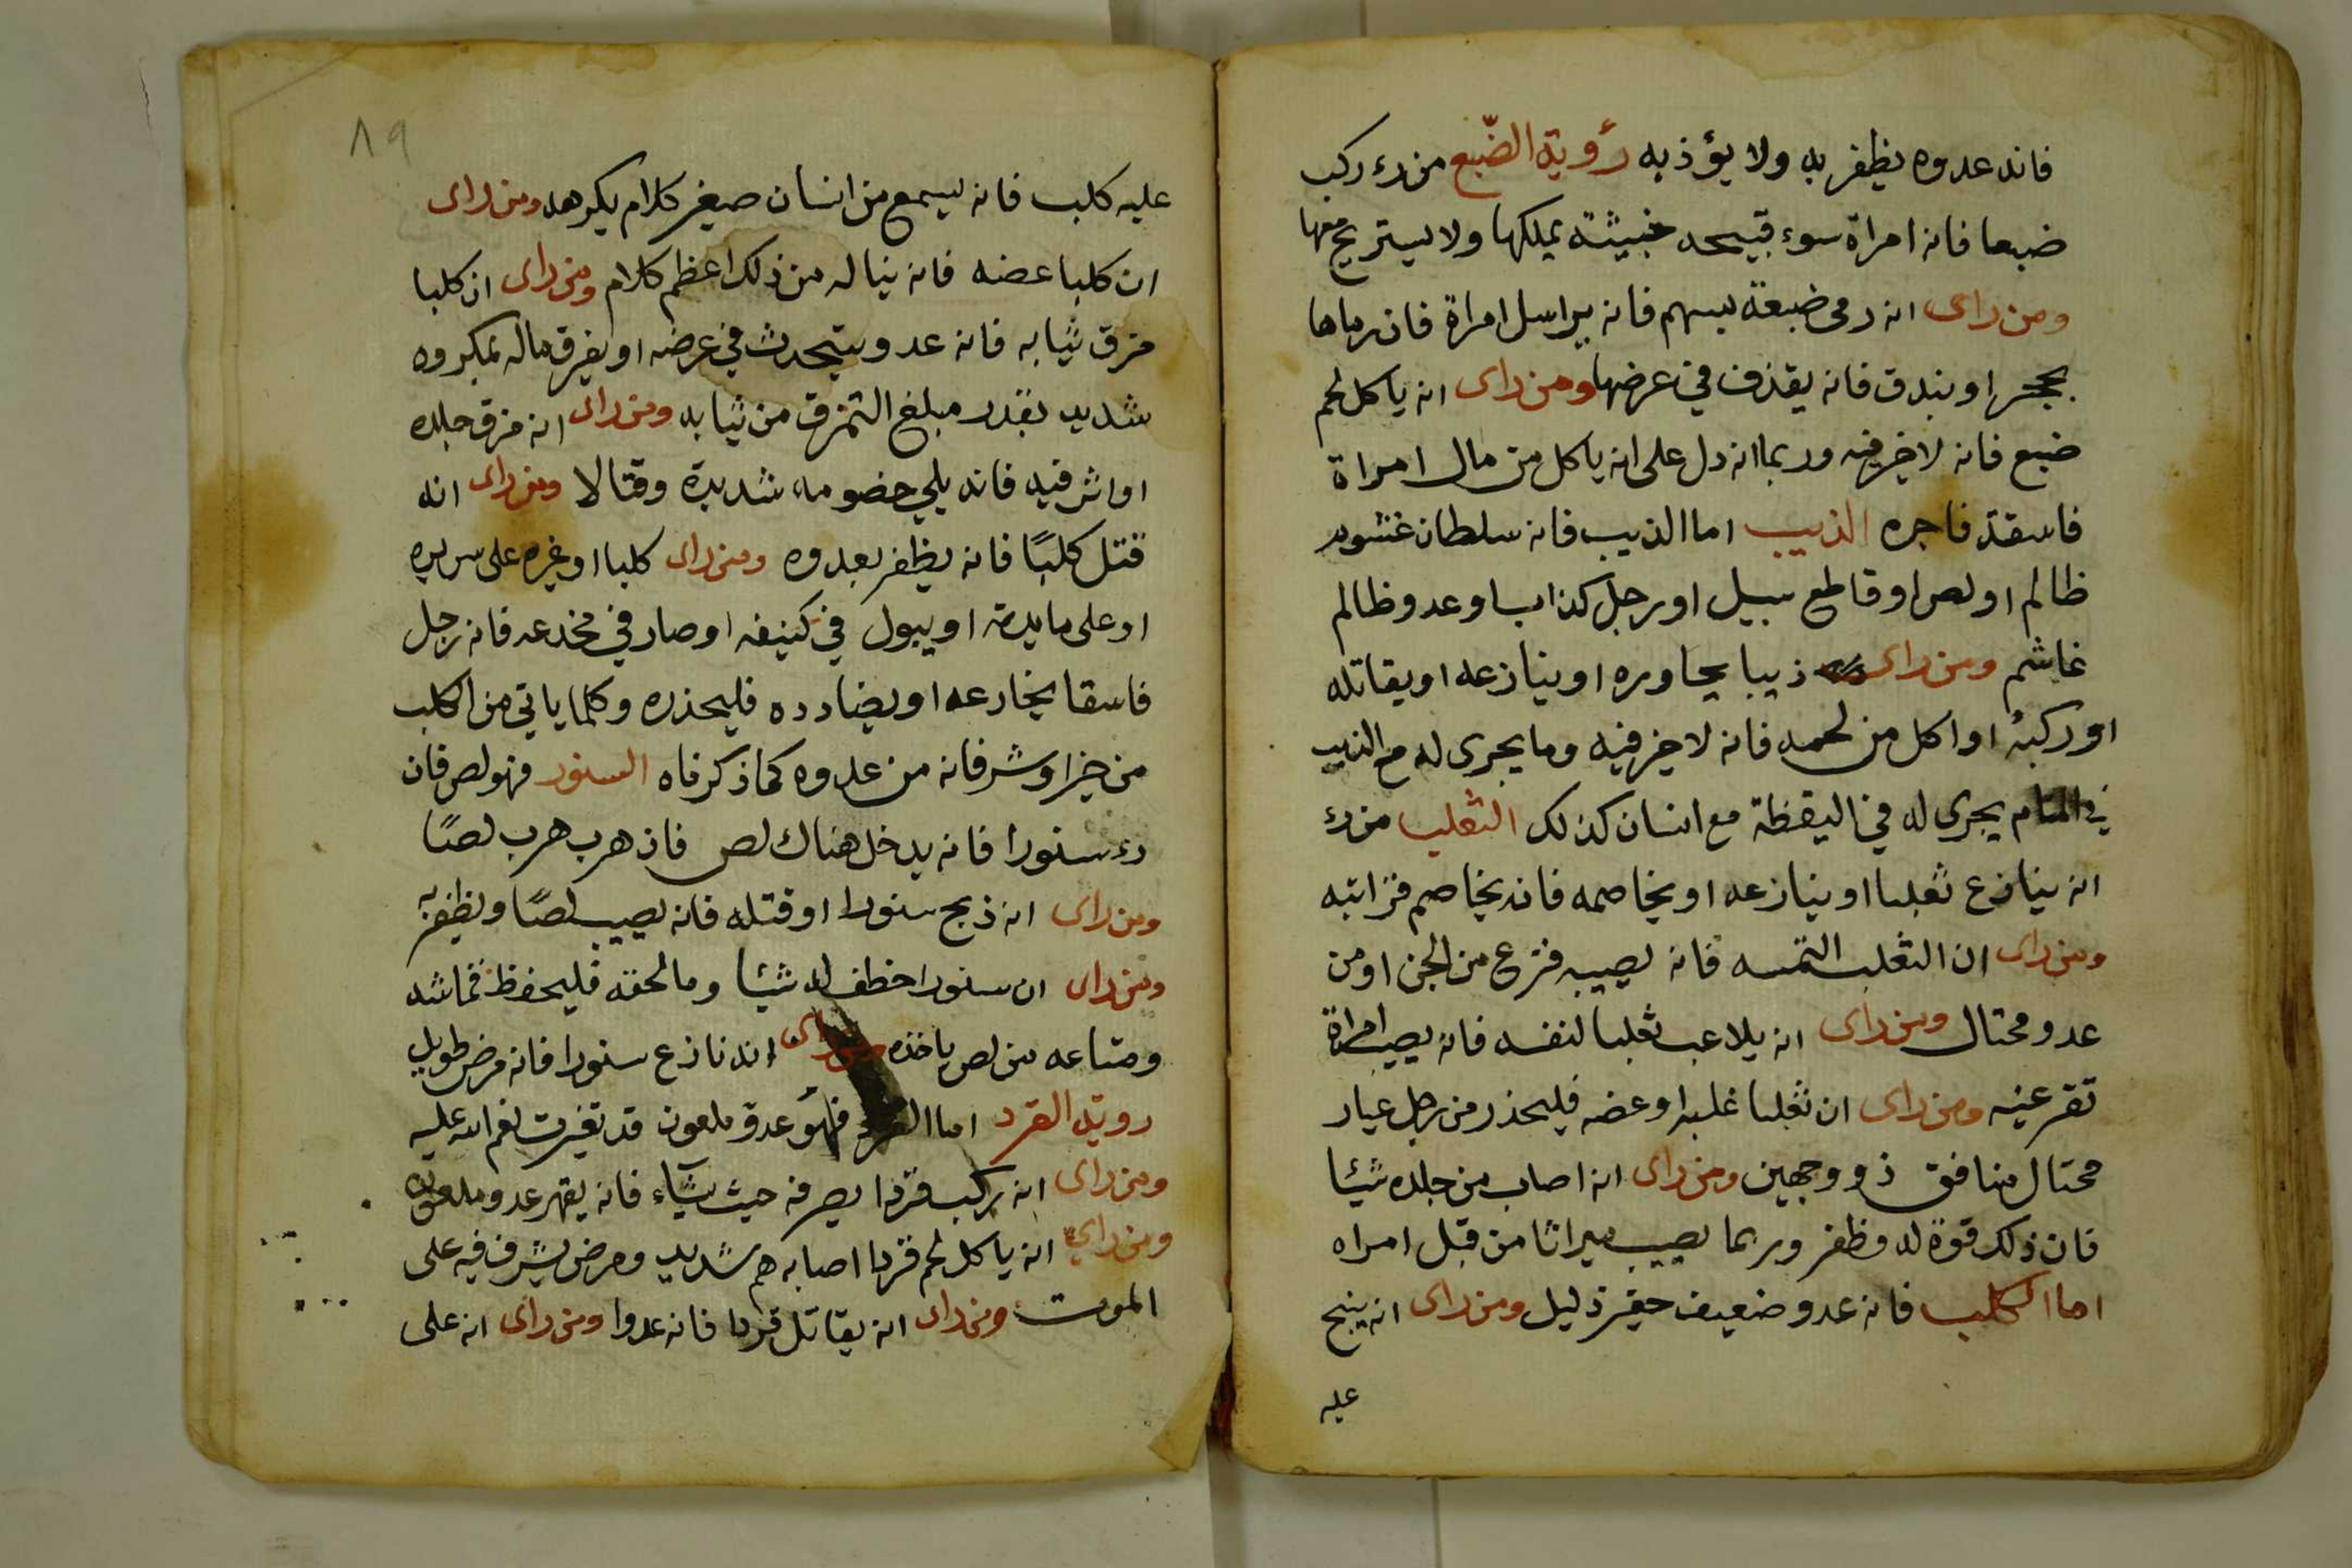 فانه عدوه يظفر به ولا يؤذيه رؤية الضّبع من رء ركب
ضبعا فانه امراة سوء قبيحه خبيثة يملكها ولا يستريح معها
ومن راى انه رمى ضبعة بسهم فانه يراسل امراة فان رماها
بحجر او بندق فانه يقذف في عرضها ومن راى انه ياكل لحم
ضبع فانه لا خير فيه وربما انه دل على انه ياكل من مال امراة
فاسقة فاجره الذيب اما الذيب فانه سلطان غشوم
ظالم او لص او قاطع سبيل او رجل كذاب او عدو ظالم
غاشم ومن راى ذيبا يحاوره او ينازعه او يقاتله
او ركبه او اكل من لحمه فانه لا خير فيه وما يجرى له مع الذيب
في المنام يجرى له في اليقظة مع انسان كذلك الثعلب من رء
انه ينازع ثعلبا او ينازعه او يخاصمه فانه يخاصم قرابته
ومن راى ان الثعلب التمسه فانه يصيبه فزع من الجن او من
عدو محتال ومن راى انه يلاعب ثعلبا لنفسه فانه يصيب امراة
تقر عينه ومن راى ان ثعلبا غلبه او عضه فليحذر من رجل عيار
محتال منافق ذو وجهين ومن راى انه اصاب من جلده شيئا
فان ذلك قوة له وظفر وربما يصيب ميراثا من قبل امراه
اما الكلب فانه عدو ضعيف حقير ذليل ومن راى انه ينبح
عليه
٨٩
عليه كلب فانه ليسمع من انسان صغير كلام يكرهه ومن راى
ان كلبا عضه فانه يناله من ذلك اعظم كلام ومن راى ان كلبا
مزق ثيابه فانه عدو يتحدث في عرضه او يفرق ماله بمكروه
شديد بقدر مبلغ التمزق من ثيابه ومن راى انه مزق جلده
او اثر فيه فانه يلي خصومه شديدة وقتالا ومن راى انه
قتل كلبًا فانه يظفر بعدوه ومن راى كلبا او غيره على سريره
او على مايدته او يبول في كنيفه او صار في مخدعه فانه رجل
فاسقا يخادعه او يضادده فليحذره وكلما ياتى من الكلب
من خير او شر فانه من عدوه كما ذكرناه السنور فهو لص فان
رء سنورا فانه يدخل هناك لص فان هرب هرب لصًا
ومن راى انه ذبح سنورا او قتله فانه يصيب لصًا ويظفر به
ومن راى ان سنورا خطف له شيئا وما لحقه فليحفظ قماشه
ومتاعه من لص ياخذه ومن راى انه نازع سنورا فانه مرض طويل
روية القرد اما القرد فهو عدو ملعون قد تغيرت نعم الله عليه
ومن راى انه يركب قردا يصرفه حيث يشاء فانه يقهر عدو ملعون
ومن راي انه ياكل لحم قردا اصابه هم شديد ومرض يشرف فيه على
الموت ومن راى انه يقاتل قردا فانه عدوا ومن راى انه على